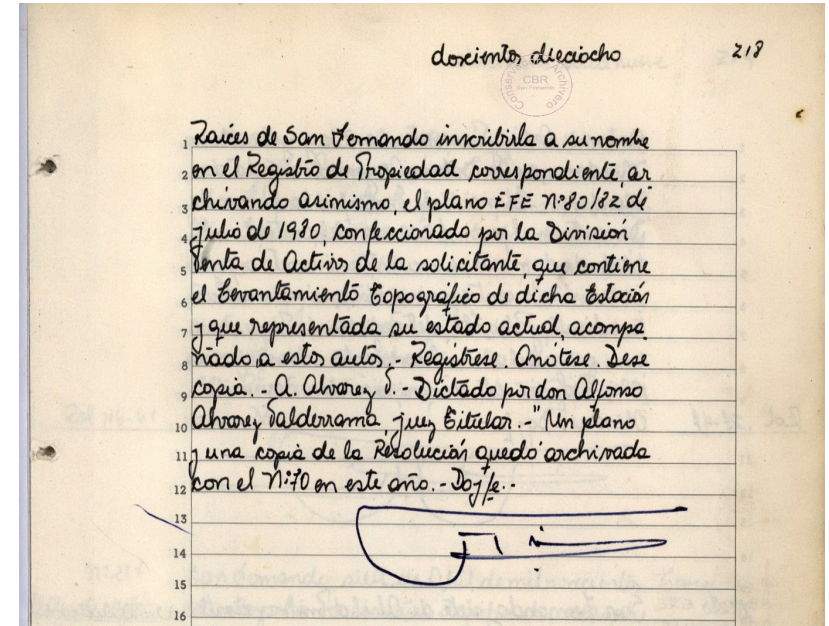 doscientos dieciocho 218
Conservador Archivero
CBR
San Fernando
1 Raíces de San Fernando inscribirla a su nombre
2 en el Registro de Propiedad correspondiente, ar
3 chivando asimismo, el plano EFE Nº80/82 de
4 julio de 1980, confeccionado por la División
5 Venta de Activos de la solicitante, que contiene
6 el Levantamiento Topográfico de dicha Estación
7 y que representada su estado actual, acompa
8 ñado a estos autos.- Regístrese. Anótese. Dese
9 copia.- A. Alvarez V.- Dictado por don Alfonso
10 Alvarez Valderrama, juez Titular.-" Un plano
11 y una copia de la Resolución quedó archivada
12 con el Nº70 en este año.- Doy fe.-
13
14
15
16